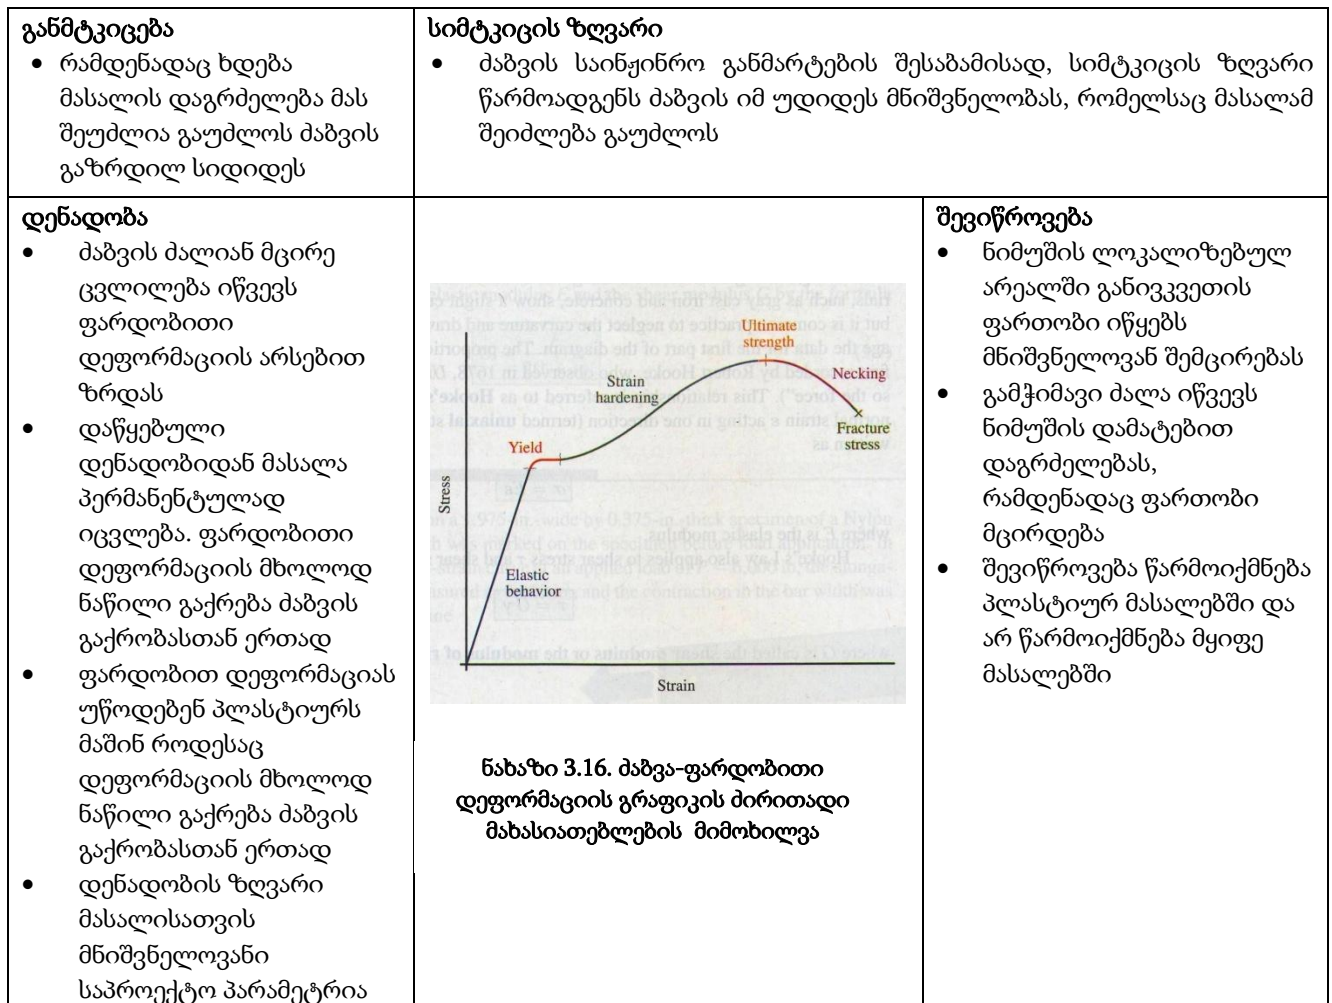 განმტკიცება
• რამდენადაც ხდება
მასალის დაგრძელება მას
შეუძლია გაუძლოს ძაბვის
გაზრდილ სიდიდეს
სიმტკიცის ზღვარი
• ძაბვის საინჟინრო განმარტების შესაბამისად, სიმტკიცის ზღვარი
წარმოადგენს ძაბვის იმ უდიდეს მნიშვნელობას, რომელსაც მასალამ
შეიძლება გაუძლოს
დენადობა
• ძაბვის ძალიან მცირე
ცვლილება იწვევს
ფარდობითი
დეფორმაციის არსებით
ზრდას
• დაწყებული
დენადობიდან მასალა
პერმანენტულად
იცვლება. ფარდობითი
დეფორმაციის მხოლოდ
ნაწილი გაქრება ძაბვის
გაქრობასთან ერთად
• ფარდობით დეფორმაციას
უწოდებენ პლასტიურს
მაშინ როდესაც
დეფორმაციის მხოლოდ
ნაწილი გაქრება ძაბვის
გაქრობასთან ერთად
• დენადობის ზღვარი
მასალისათვის
მნიშვნელოვანი
საპროექტო პარამეტრია
Ultimate
strength
Necking
Strain
hardening
Fracture
stress
Yield
Stress
Elastic
behavior
Strain
ნახაზი 3.16. ძაბვა-ფარდობითი
დეფორმაციის გრაფიკის ძირითადი
მახასიათებლების მიმოხილვა
შევიწროვება
• ნიმუშის ლოკალიზებულ
არეალში განივკვეთის
ფართობი იწყებს
მნიშვნელოვან შემცირებას
• გამჭიმავი ძალა იწვევს
ნიმუშის დამატებით
დაგრძელებას,
რამდენადაც ფართობი
მცირდება
• შევიწროვება წარმოიქმნება
პლასტიურ მასალებში და
არ წარმოიქმნება მყიფე
მასალებში